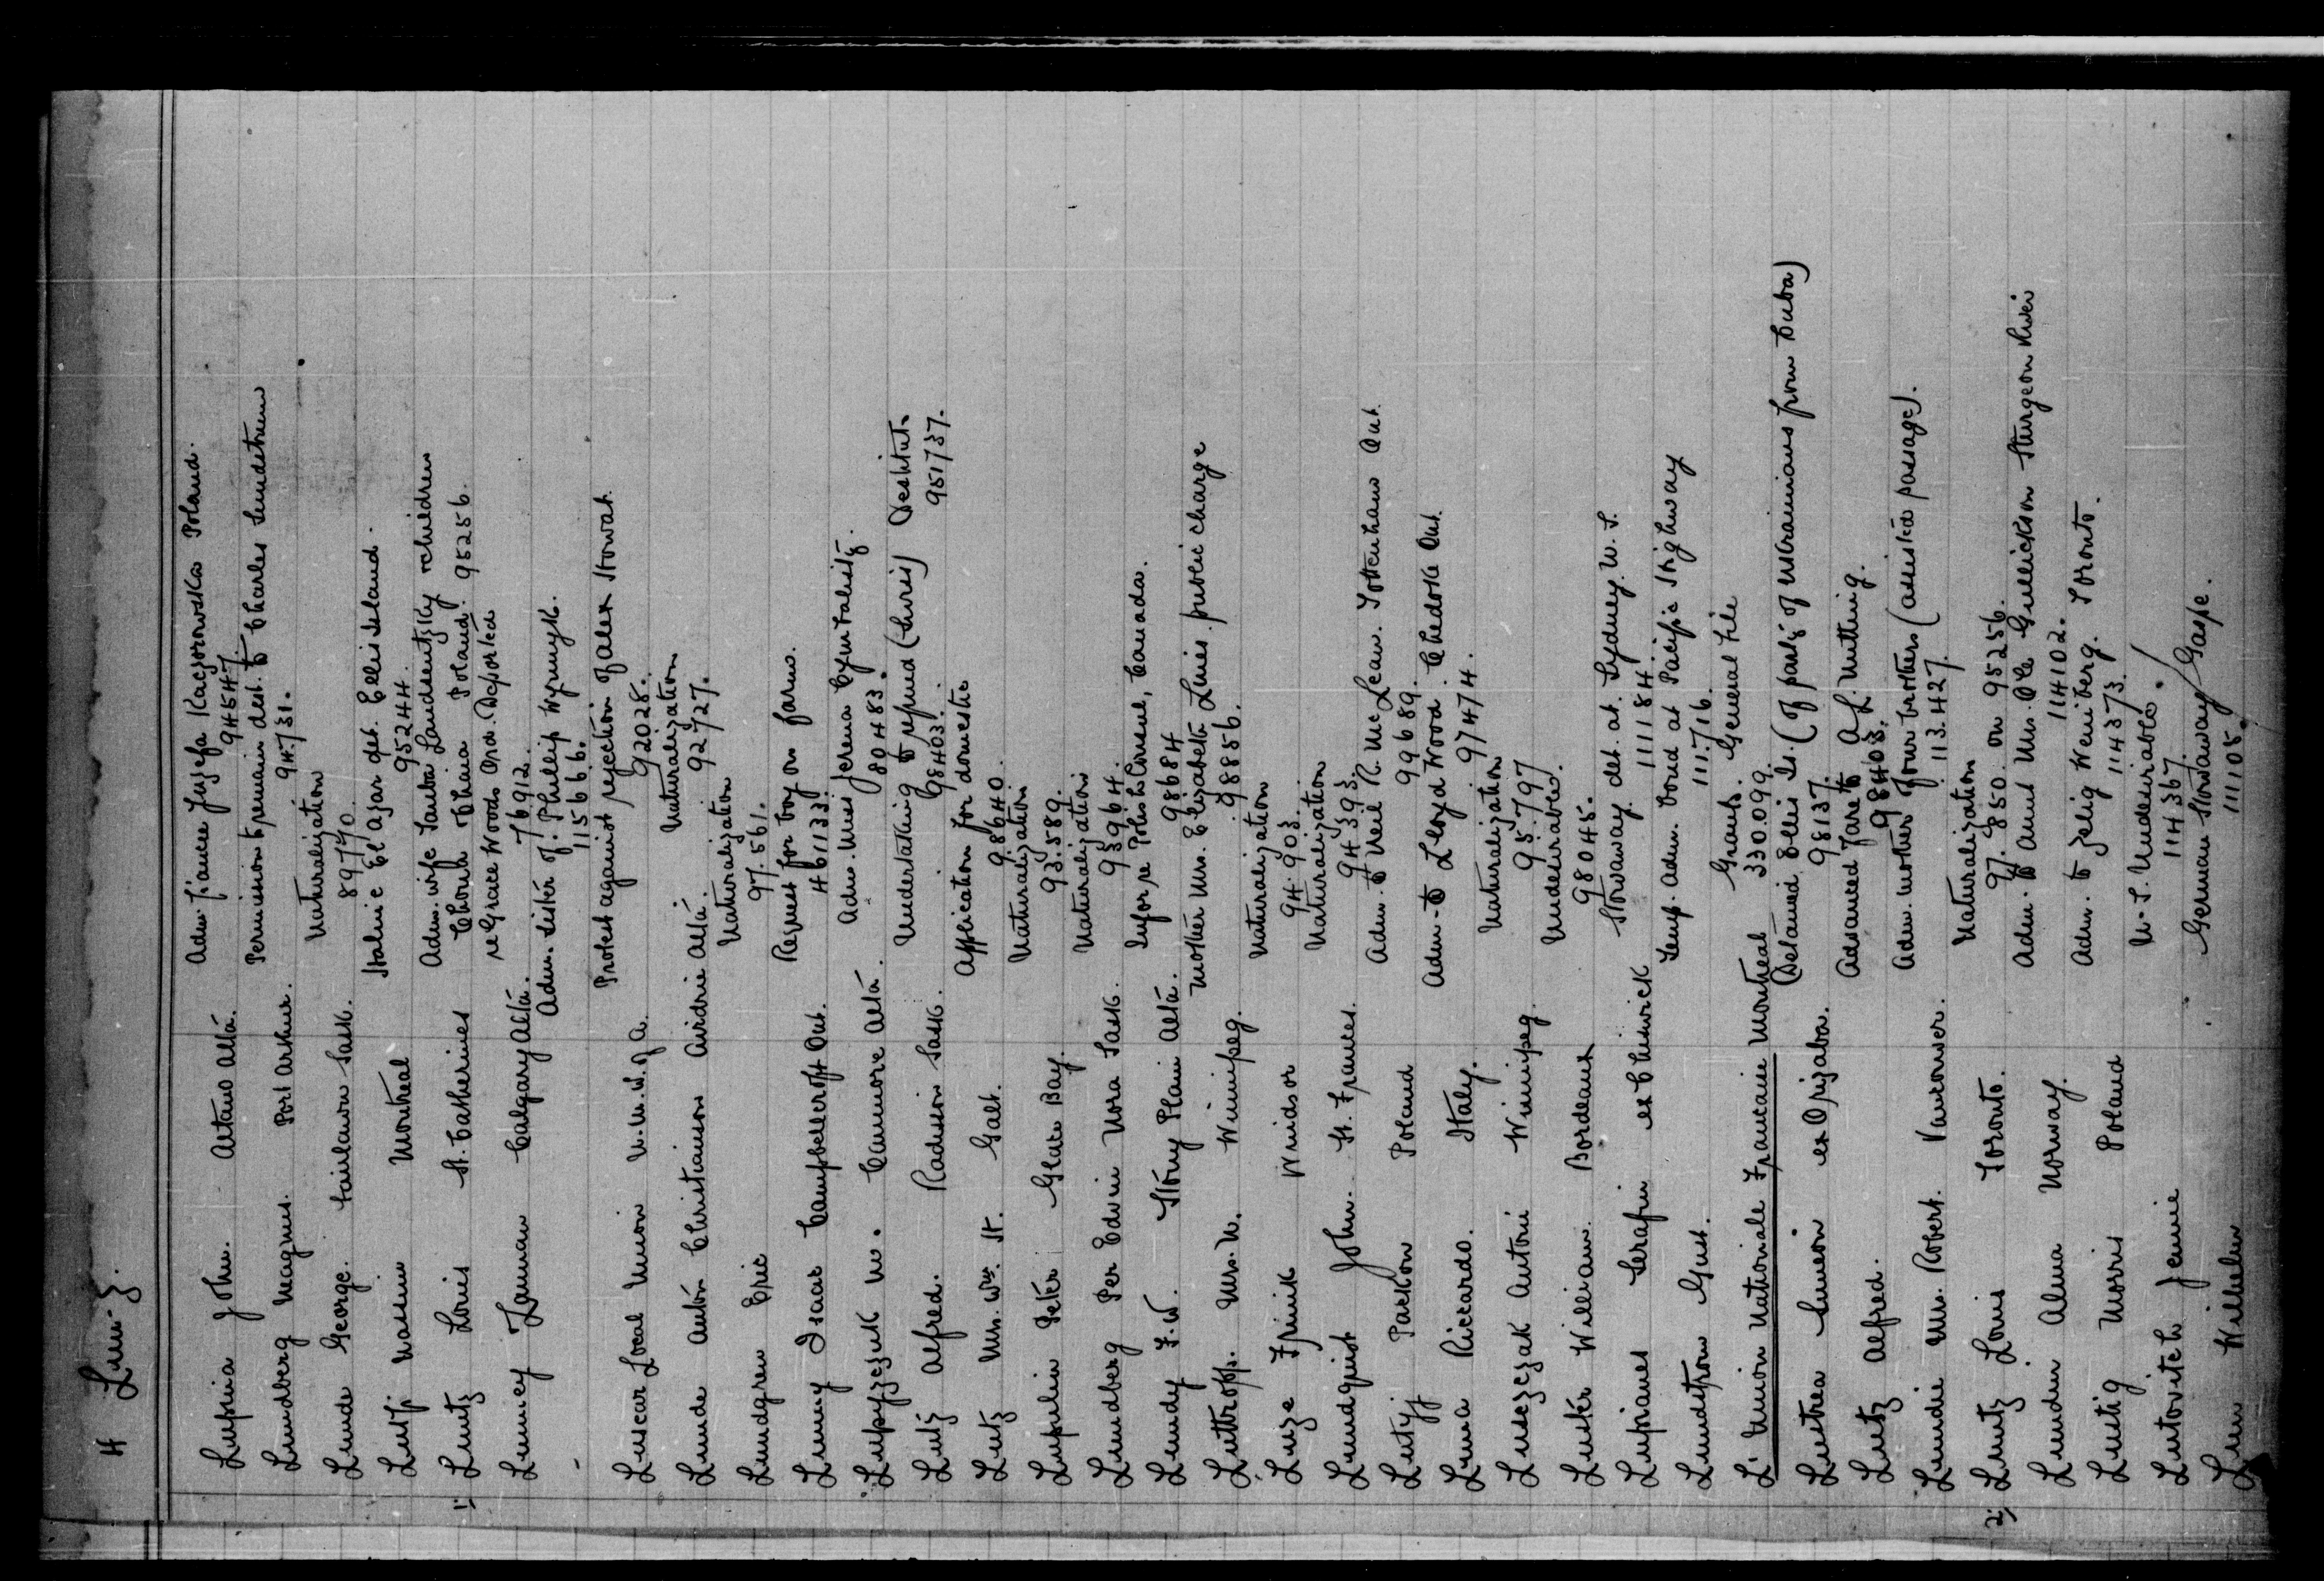 4 Lun-z.
Lupsina John. Altario Alta. Adm. fiancee Juzefa Kaczorowska Poland.
945547.
Lundberg Magnus. Port Arthur. Permission to remain dest. to Charles Lundstrum
94.731.
Lunde George. Fairlawn Sask. Naturalization
89770.
Lutfi Wassim Montreal Halmie El Azar det. Ellis Island.
95244.
1; Luntz Louis St. Catherines Adm. wife Taube Landsentzky & children
Chouna & Chaia Poland. 95256.
Lunney Lannan Calgary Alta. re Grace Woods Ord. Deported
76912.
Adm. sister of Phillip Wynnyk.
115666.
Luscar Local Union U.M.W. of A. Protest against rejection of Alex Stowart.
92028.
Lunde Anton Christianson Airdrie Alta. Naturalization
92727.
Lundgren Eric Naturalization
97.561.
Lunny Isaac Campbellcroft Ont. Request for boy on farm.
461133.
Lupyzczuk W. Canmore Alta. Adm. Miss Jerena Cymbalisty.
80483.
Lutz Alfred. Radisson Sask. Undertaking to refund (Luris) Destitute
98403. 951737.
Lutz Mrs. Wm. H. Galt. Application for domestic
98640.
Lupulin Peter Glace Bay. Naturalization
93.589.
Lundberg Per Edvin Nora Sask. Naturalization
93964.
Lundy F.W. Stony Plain Alta. Infor. re Polish Consul, Canada.
98684
Luttropp. Mrs. W. Winnipeg. Mother Mrs. Elizabeth Lines public charge
98856.
Luze Frinik Windsor Naturalization
94.903.
Lundquist John. Ft. Frances. Naturalization
94393.
Lutyj Parkow Poland Adm. to Neil R. McLean. Tottenham Ont.
99689.
Luna Riccardo. Italy. Adm. to Lloyd Wood. Chedoke Ont.
97474.
Lusezezak Antoni Winnipeg Naturalization
95.797
Luster William. Bordeaux Undesirable.
98045.
Lupianes Serafin ex Chiswick Stowaway. det. at. Sydney. N.S.
111184.
Lundstrom Gust. Temp. Adm. bond at Pacific Highway
111.716.
L'Union Nationale Francaise Montreal Grants. General File
330.099.
Lustrea Simeon ex Orizaba. (Detained Ellis Is. (Of party of Ukrainians from Cuba)
98137.
Lutz Alfred. Advanced fare to A.L. Nutting.
98403.
Lundie Mrs. Robert. Vancouver. Adm. mother & four brothers (assisted passage).
113.427.
2; Luntz Louis Toronto. Naturalization
97.850 on 95256.
Lundin Alma Norway. Adm. to Aunt Mrs. Ole Gullickson Sturgeon River
114102.
Lustig Morris Poland Adm. to Zelig Wenitberg. Toronto.
114373.
Lutovitch Jennie U.S. Undesirable.
114367.
Lun Wilhelm German Stowaway / Gaspe.
111105.